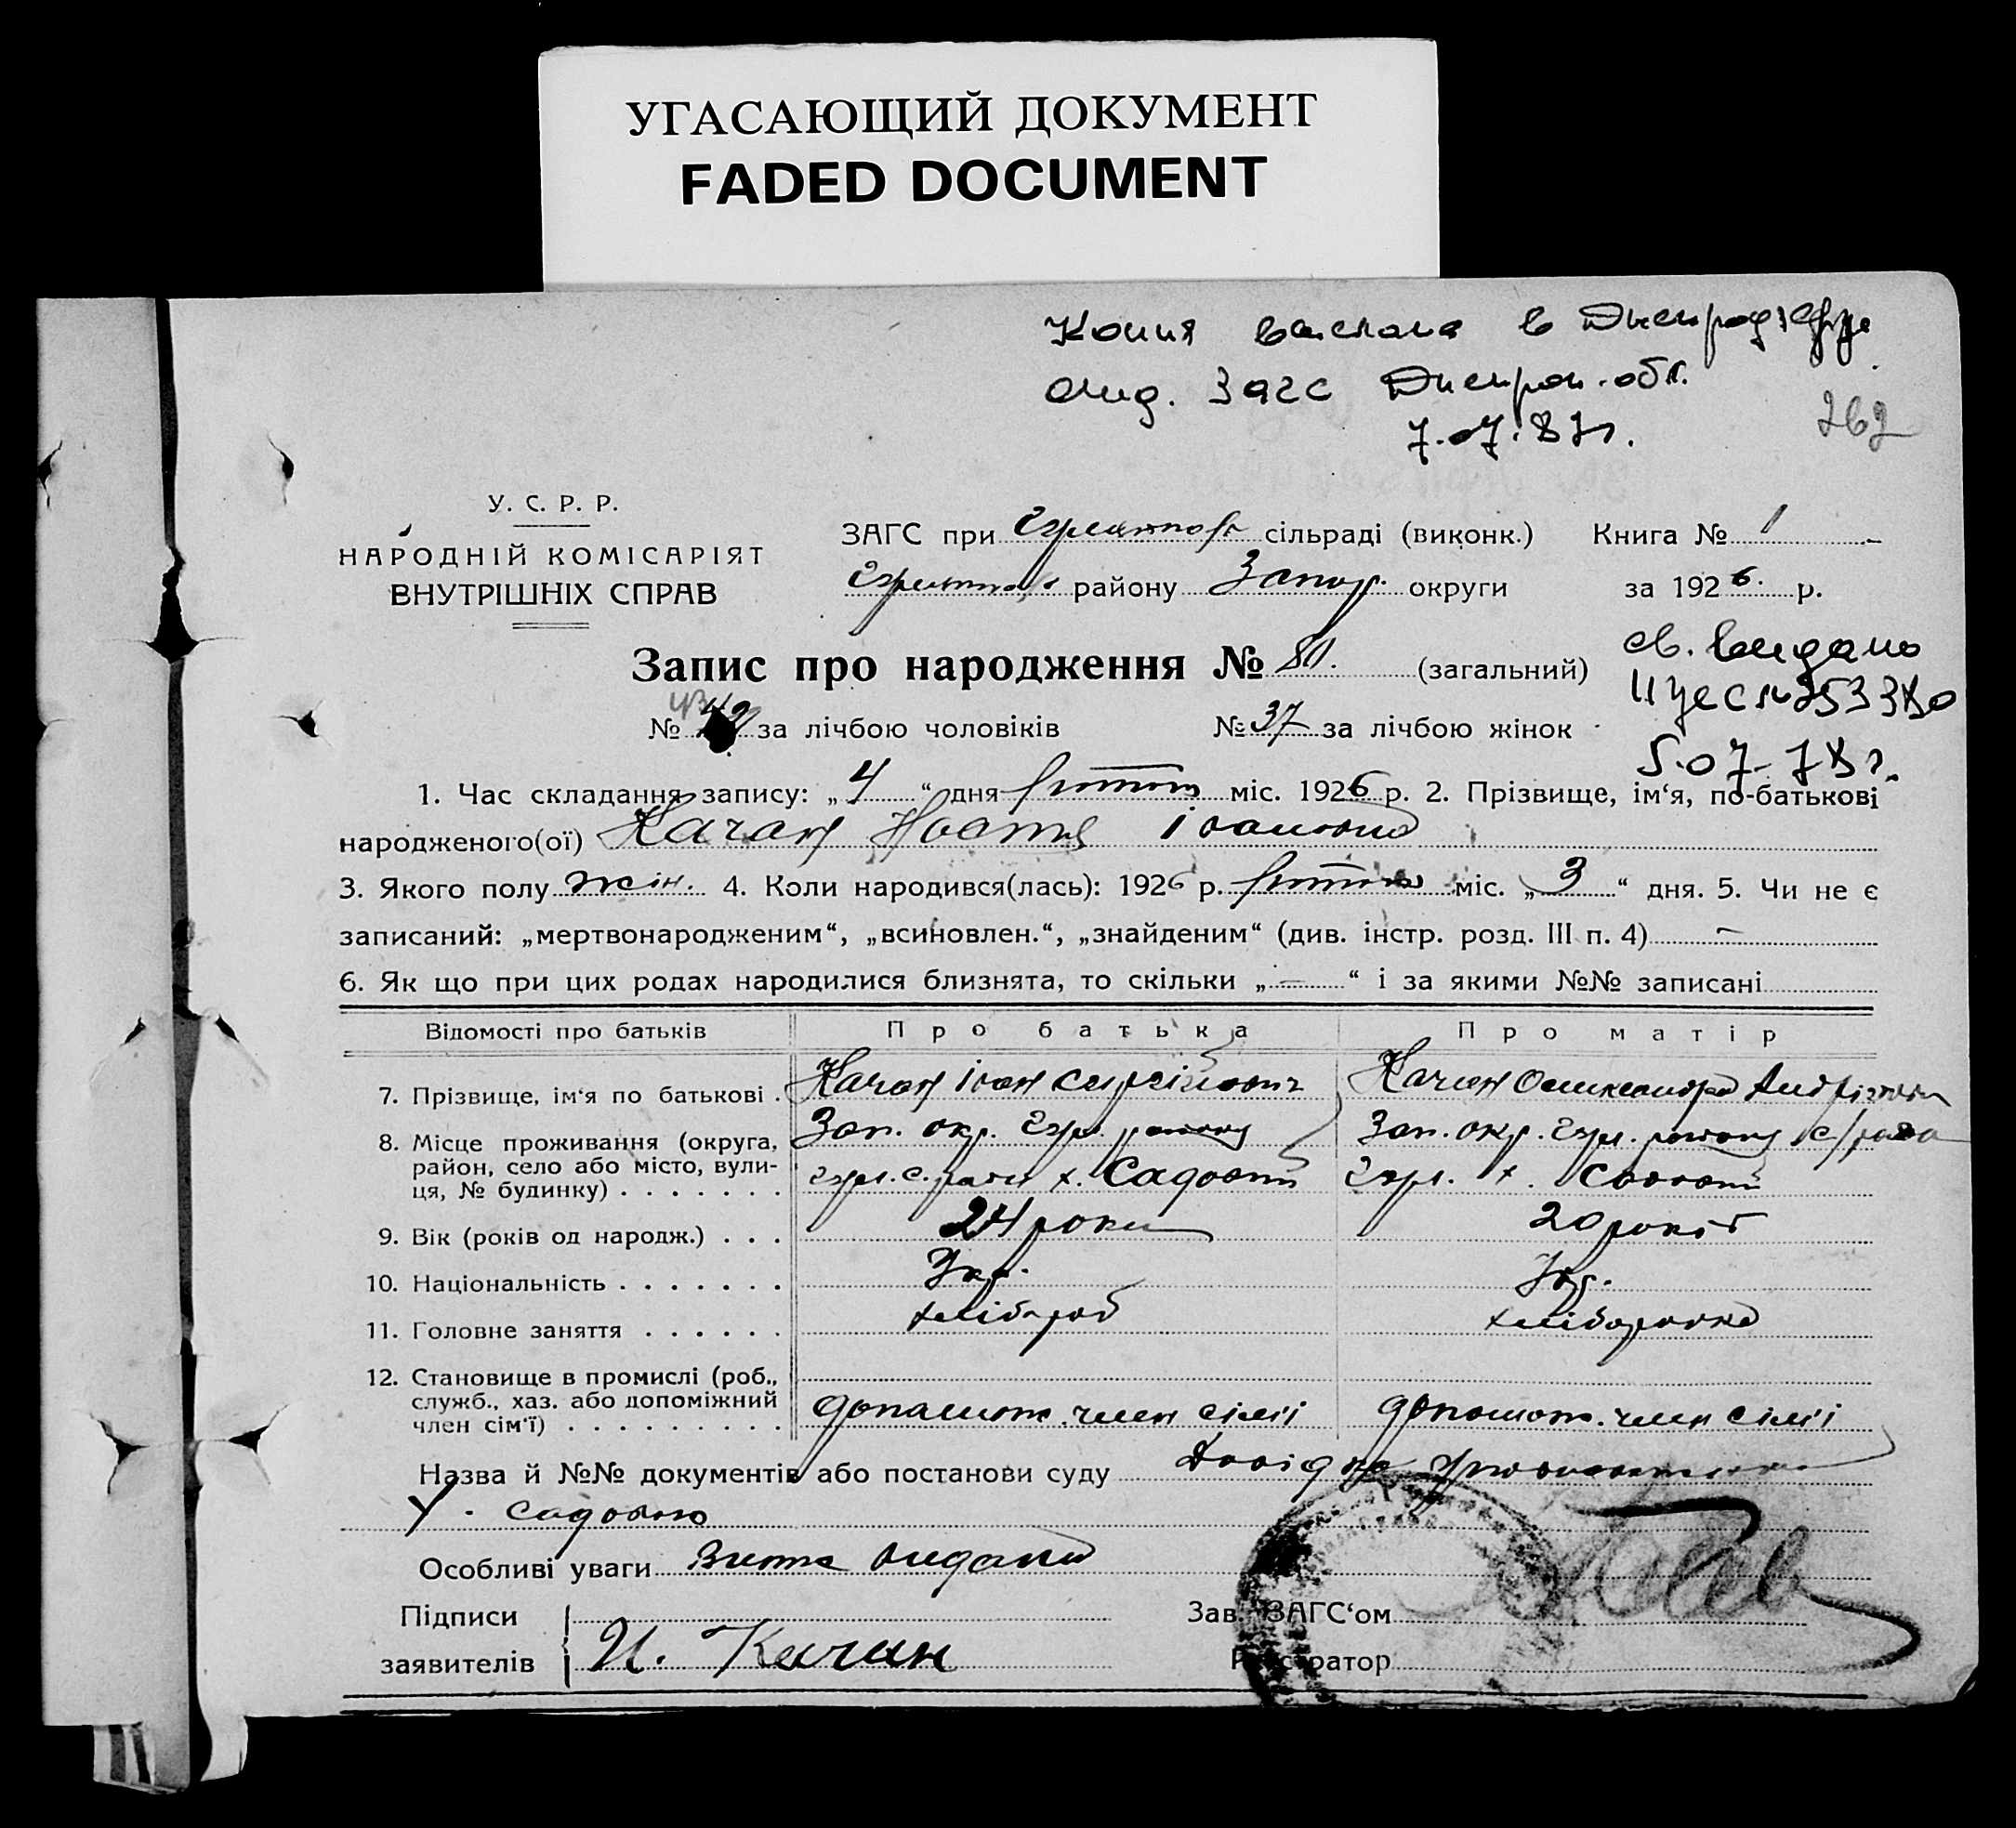 УГАСАЮЩИЙ ДОКУМЕНТ
FADED DOCUMENT
Копия выслана в
отд. Загс Днепроп. обл.
7.07.87г.
262
У. С. Р. Р.
НАРОДНІЙ КОМІСАРІЯТ
ВНУТРІШНІХ СПРАВ
ЗАГС при сільраді (виконк.) Книга № 1
району Запор. округи за 1926 р.
св. выдано
5.07.78г.
Запис про народження № 80. (загальний)
№ за лічбою чоловіків № 37 за лічбою жінок
1. Час складання запису: „4“ дня лютого міс. 1926 р. 2. Прізвище, ім‘я, по-батькові
народженого(ої) Качан Настя Івановна
3. Якого полу жін. 4. Коли народився(лась): 1926 р. лютого міс. „3“ дня. 5. Чи не є
записаний: „мертвонародженим“, „всиновлен.“, „знайденим“ (див. інстр. розд. III п. 4) —
6. Як що при цих родах народилися близнята, то скільки „—“ і за якими №№ записані
Відомості про батьків Про батька Про матір
7. Прізвище, ім‘я по батькові . Качан Іван Сергійович Качан Олександра
8. Місце проживання (округа, Зап. окр. району Зап. окр. району с/рада
район, село або місто, вули- х. Садовий х.
ця, № будинку) . . . . . . .
9. Вік (років од народж.) . . . 24 роки 20 років
10. Національність . . . . . . . Укр. Укр.
11. Головне заняття . . . . . . хлібороб хліборобка
12. Становище в промислі (роб.,
служб., хаз. або допоміжний допомож. член сімʼї допомож. член сімʼї
член сім‘ї) . . . . . . . . .
Назва й №№ документів або постанови суду Довідка
х. Садового
Особливі уваги
Підписи
заявителів И. Качан
Зав. ЗАГС‘ом
Реєстратор